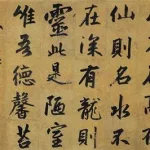 仙則名水不
在深有龍則
靈此是陋室
惟吾德馨苔